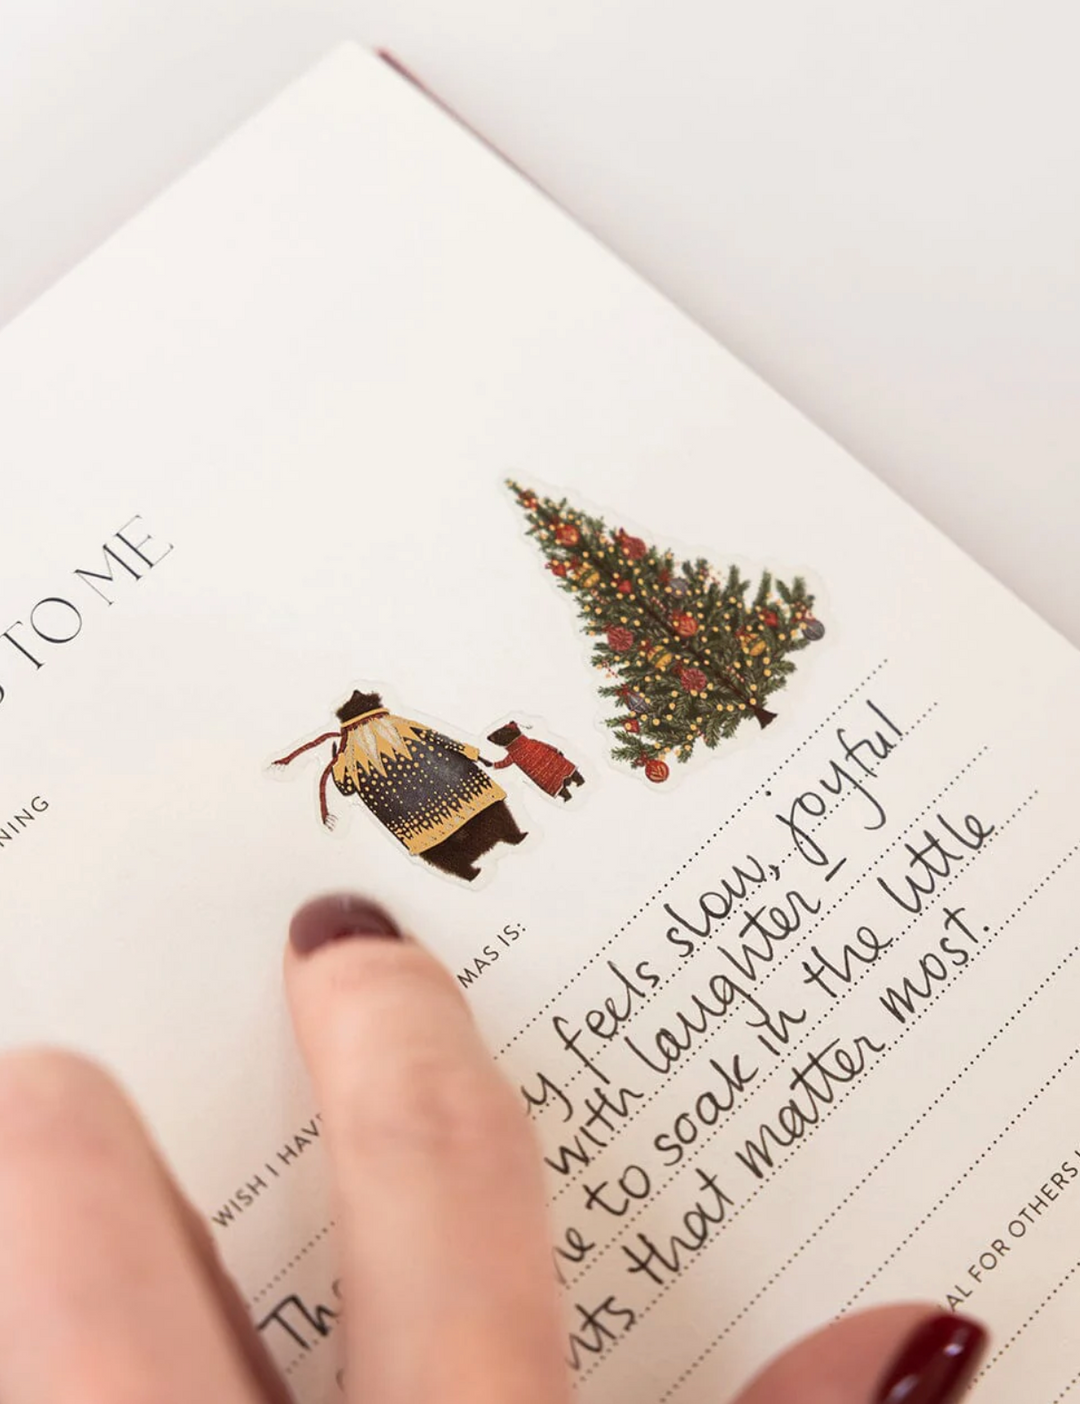 TO ME
MAS IS:
WISH I HAV
Th
y feels slow, joyful
with laughter –
to soak in the little
that matter most.
AL FOR OTHERS